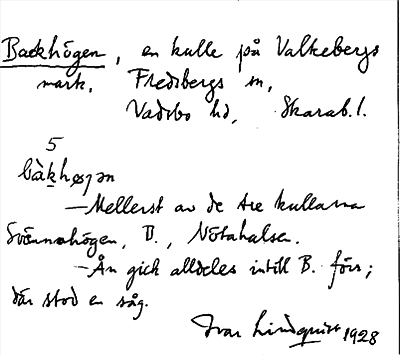 Backhögen, en kulle på Valkebergs
mark, Fredsbergs sn,
Vadsbo hd, Skarab. l.
5
bàkhøgən
—Mellerst av de tre kullarna
Svännahögen, B., Nötahalsen.
—Ån gick alldeles intill B. förr;
där stod en såg.
Ivar Lindquist 1928